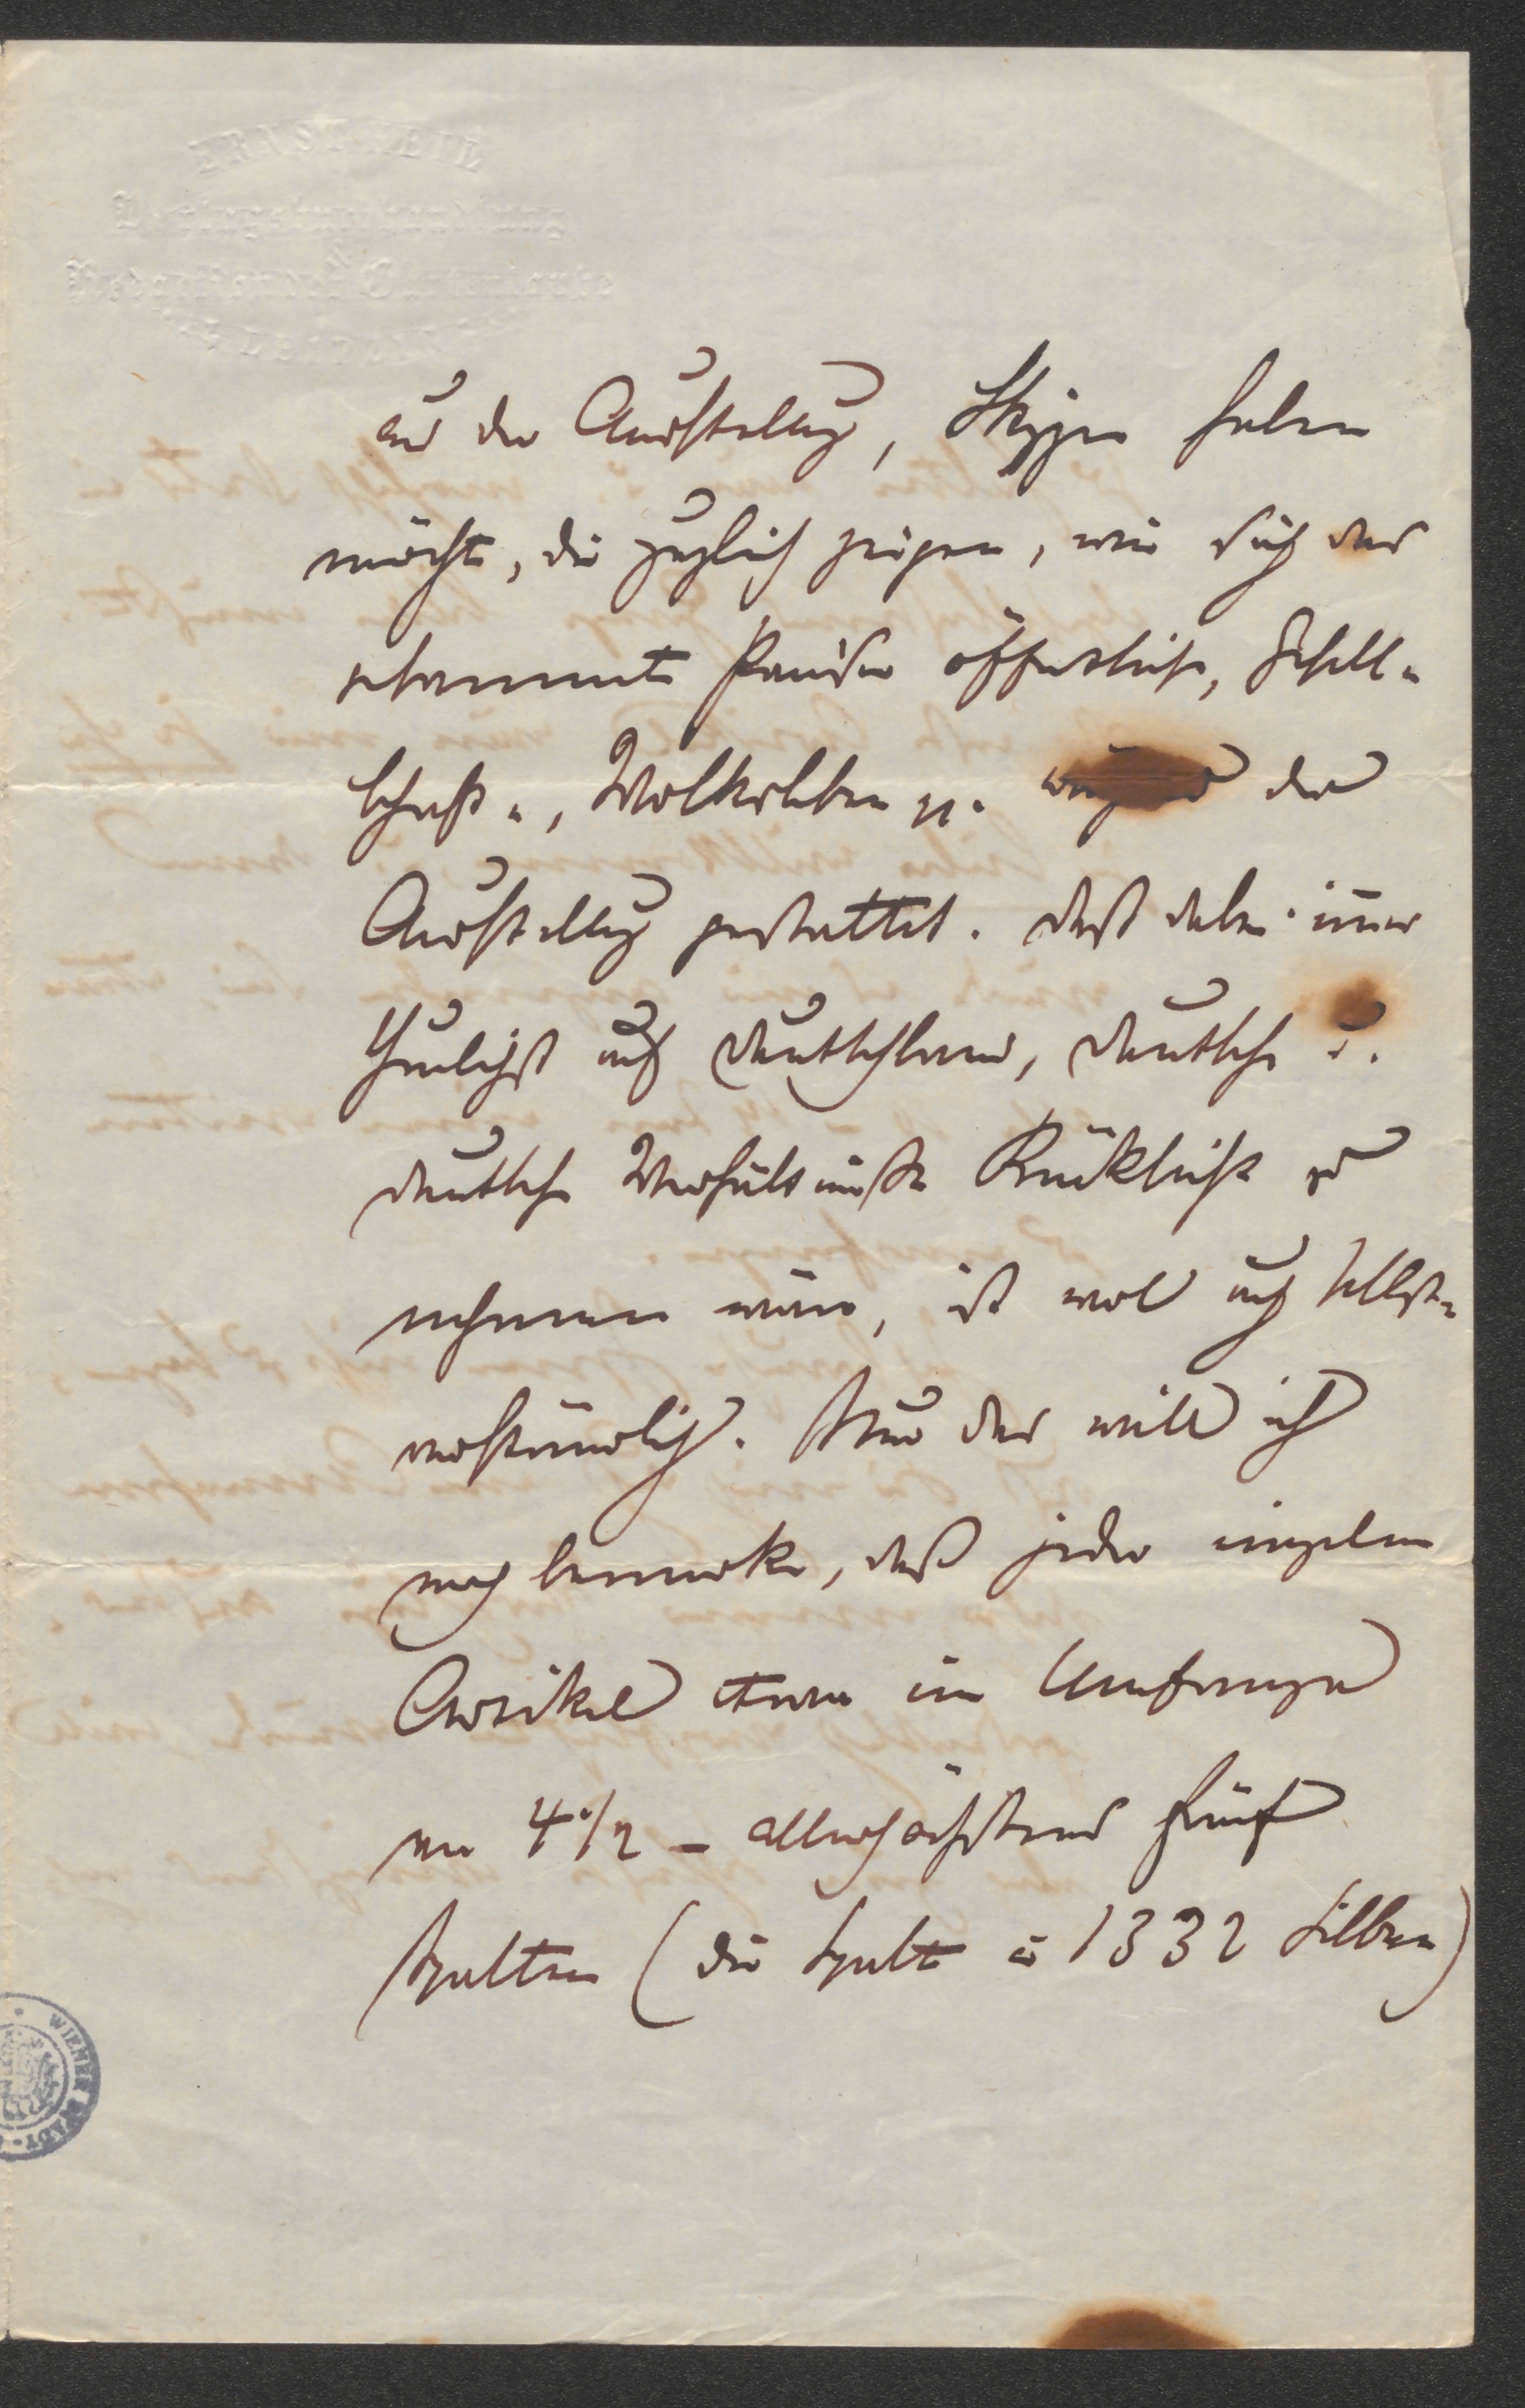 ERNST KEIL
Verlagsbuchhandlung
&
Redaction der Gartenlaube
LEIPZIG
aus der Ausstellung, Skizzen haben
möchte, die zugleich zeigen, wie sich das
Pariser öffentliche, Gesell-
schafts-, Volksleben pp. während der
Ausstellung gestaltet. Daß dabei immer
thunlichst auf Deutschland, Deutsche u.
deutsche Verhältnisse Rücksicht zu
nehmen wäre, ist wol auch selbst-
verständlich. Nur das will ich
noch bemerken, daß jeder einzelne
Artikel etwa im Umfange
von 4 1/2 – allerhöchstens fünf
Spalten (die Spalte à 1332 Silben)
WIENER STADT